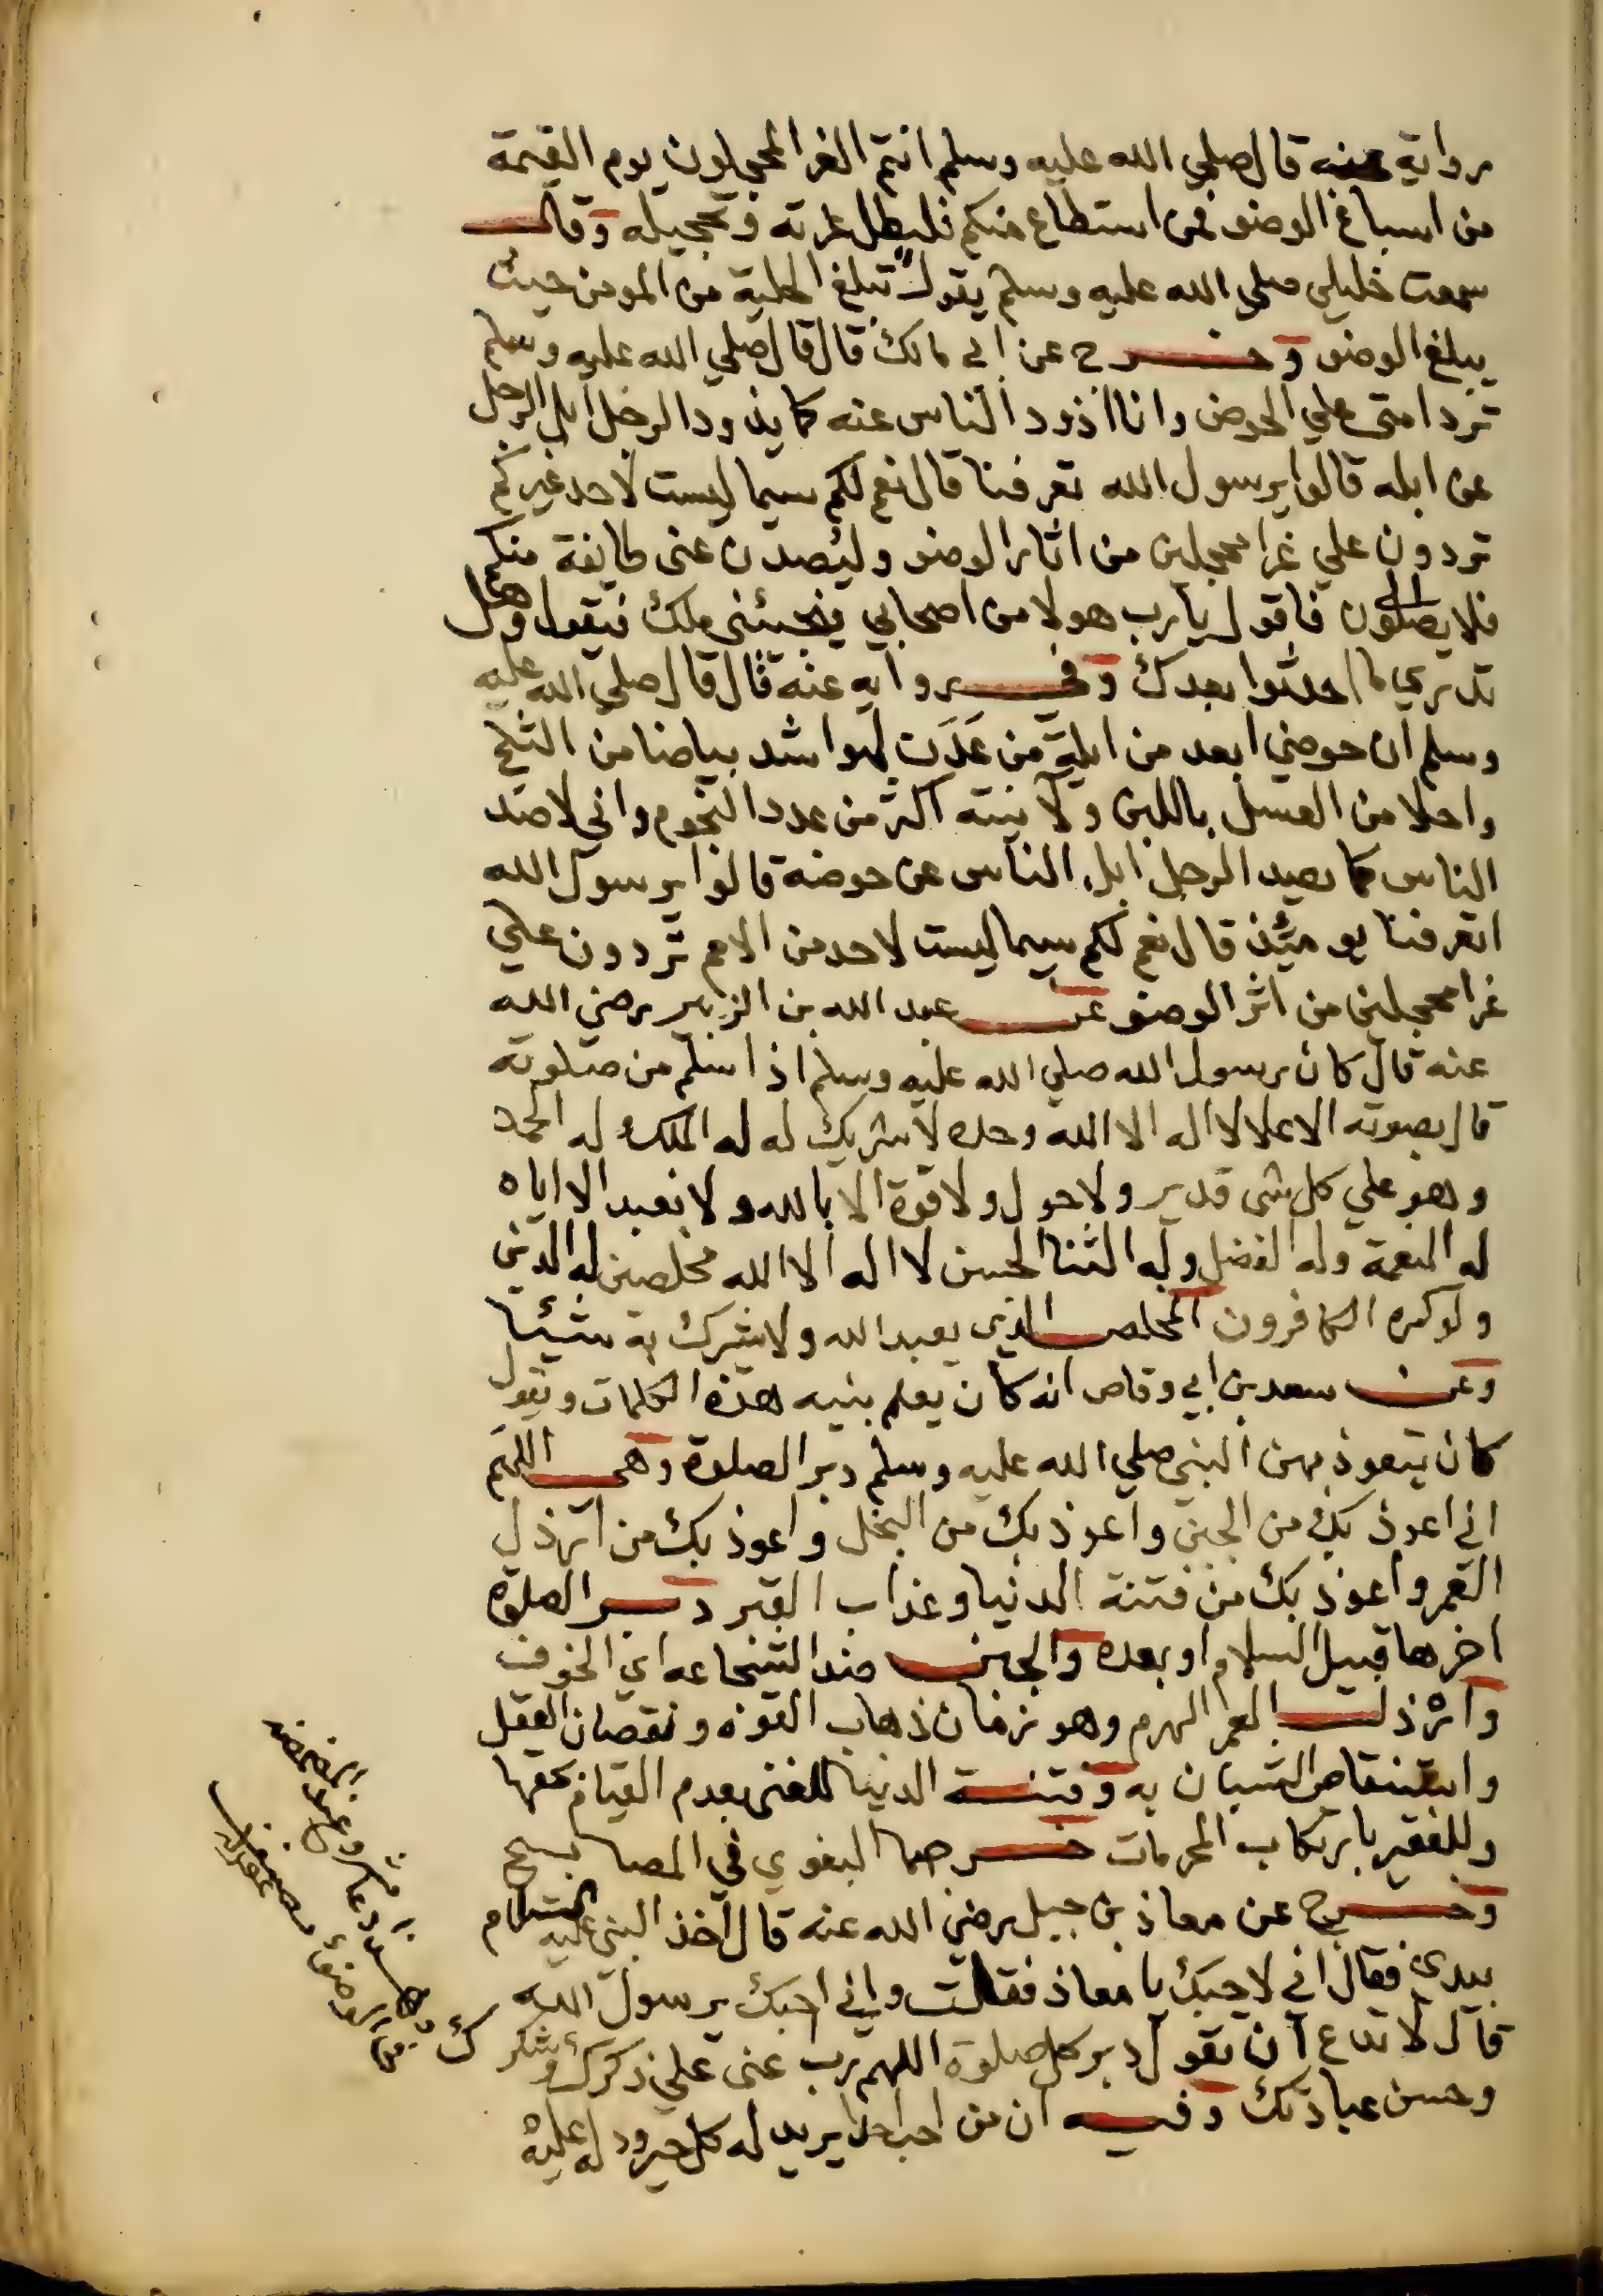 رواية عنه قال صلي الله عليه وسلم انتم الغر المحجلون يوم القيمة
من اسباغ الوضو فمن استطاع منكم فليطل غرته وتحجيله وقال
سمعت خليلي صلي الله عليه وسلم يقول تبلغ الحلية من المومن حيث
يبلغ الوضو وخرج عن ابي مالك قال قال صلي الله عليه وسلم
ترد امتي علي الحوض وانا اذود الناس عنه كما يذود الرجل ابل الرجل
عن ابله قالوا يرسول الله تعرفنا قال نعم لكم سيما ليست لاحد غيركم
تردون علي غرا محجلين من اثار الوضو وليصدن عني طايفة منكم
فلا يصلون فاقول يا رب هولا من اصحابي فيجيئني ملك فيقول وهل
تدري ما احدثوا بعدك وفي رواية عنه قال قال صلي الله عليه
وسلم ان حوضي ابعد من ايلة من عدن لهو اشد بياضا من الثلج
واحلا من العسل باللبن ولآنيته اكثر من عدد النجوم واني لاصد
الناس كما يصد الرجل ابل الناس عن حوضه قالوا يرسول الله
اتعرفنا يوميئذ قال نعم لكم سيما ليست لاحد من الامم تردون علي
غرا محجلين من اثر الوضو عن عبد الله بن الزبير رضي الله
عنه قال كان رسول الله صلي الله عليه وسلم اذا سلم من صلوته
قال بصوته الاعلا لا اله الا الله وحده لا شريك له له الملك وله الحمد
وهو علي كل شي قدير ولا حول ولا قوة الا بالله ولا نعبد الا اياه
له النعمة وله الفضل وله الثنا الحسن لا اله الا الله مخلصين له الدين
ولو كره الكافرون المخلص الذي يعبد الله ولا يشرك به شيئا
وعن سعد بن ابي وقاص انه كان يعلم بنيه هذه الكلمات ويقول
كان يتعوذ بهن النبي صلي الله عليه وسلم دبر الصلوة وهي اللهم
اني اعوذ بك من الجبن واعوذ بك من البخل واعوذ بك من ارذل
العمر واعوذ بك من فتنة الدنيا وعذاب القبر دبر الصلوة
اخرها قبيل السلام او بعده والجبن ضد الشجاعه اي الخوف
وارذل العمر الهرم وهو زمان ذهاب القوه ونقصان العقل
واستنقاص الشبان به وفتنة الدنيا للغني بعدم القيام بحقها
وللفقير بارتكاب المحرمات خرجهما البغوي في المصابيح
وخرج عن معاذ بن جبل رضي الله عنه قال اخذ النبي عليه السلام
بيدي فقال اني لاحبك يا معاذ فقلت واني احبك يرسول الله
قال لا تدع ان تقول دبر كل صلوة اللهم رب عني علي ذكرك وشكرك
وحسن عبادتك وفيه ان من احب احدا يريد له كل خير ود له عليه